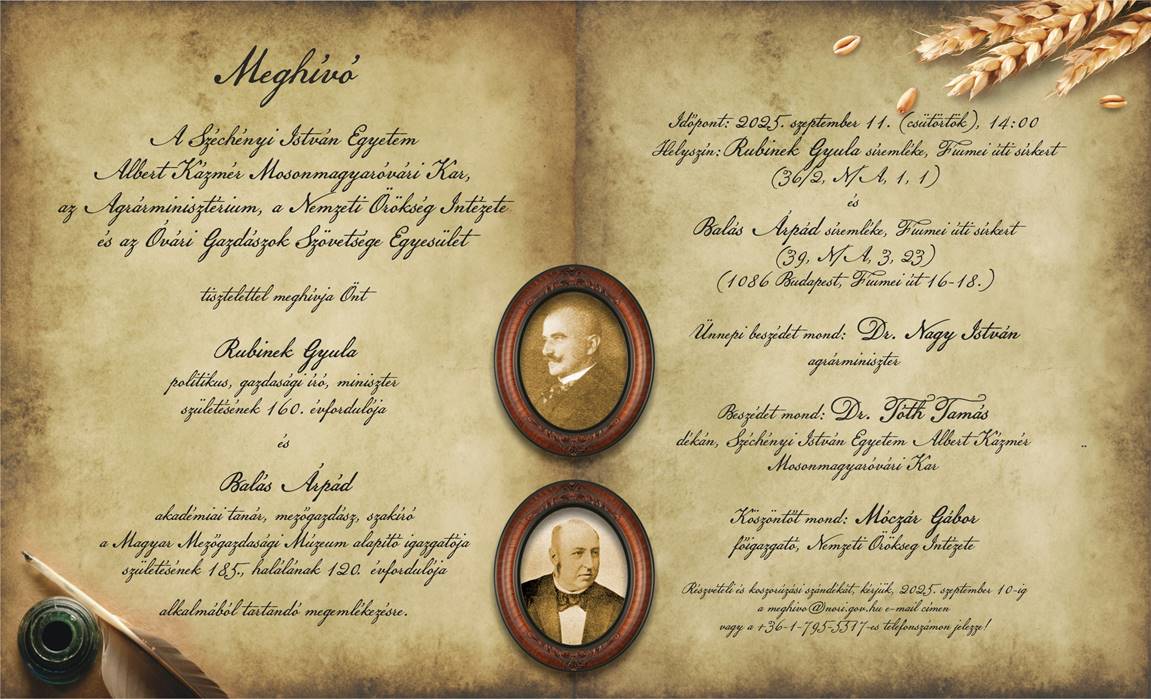 Meghívó
A Széchényi István Egyetem
Albert Kázmér Mosonmagyaróvári Kar,
az Agrárminisztérium, a Nemzeti Örökség Intézete
és az Óvári Gazdászok Szövetsége Egyesület
tisztelettel meghívja Önt
Rubinek Gyula
politikus, gazdasági író, miniszter
születésének 160. évfordulója
és
Balás Árpád
akadémiai tanár, mezőgazdász, szakíró
a Magyar Mezőgazdasági Múzeum alapító igazgatója
születésének 185., halálának 120. évfordulója
alkalmából tartandó megemlékezésre.
Időpont: 2025. szeptember 11. (csütörtök), 14:00
Helyszín: Rubinek Gyula síremléke, Fiumei úti sírkert
(36/2, N/A, 1, 1)
és
Balás Árpád síremléke, Fiumei úti sírkert
(39, N/A, 3, 23)
(1086 Budapest, Fiumei út 16-18.)
Ünnepi beszédet mond: Dr. Nagy István
agrárminiszter
Beszédet mond: Dr. Tóth Tamás
dékán, Széchényi István Egyetem Albert Kázmér
Mosonmagyaróvári Kar
Köszöntőt mond: Móczár Gábor
főigazgató, Nemzeti Örökség Intézete
Részvételi és koszorúzási szándékát, kérjük, 2025. szeptember 10-ig
a meghivo@nori.gov.hu e-mail címen
vagy a +36-1-795-5517-es telefonszámon jelezze!